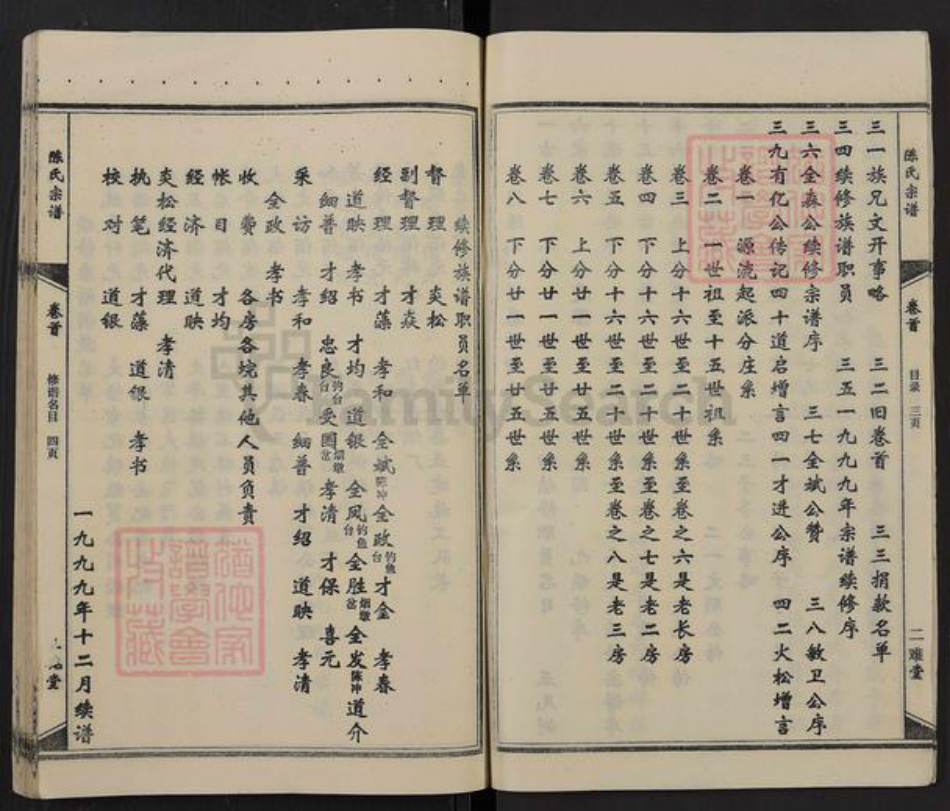 陈氏宗谱
卷首
目录 三页
二难堂
三一族兄文开事略 三二旧卷首 三三捐款名单
三四续修族谱职员 三五一九九九年宗谱续修序
三六全森公续修宗谱序 三七全斌公赞 三八敏卫公序
三九有亿公传记四十道启增言四一才进公序 四二火松增言
卷一 源流起派分庄系
卷二 一世祖至十五世祖系
卷三 上分十六世至二十世系至卷之六是老长房
卷四 下分十六世至二十世系至卷之七是老二房
卷五 下分十六世至二十世系至卷之八是老三房
卷六 上分廿一世至廿五世系
卷七 下分廿一世至廿五世系
卷八 下分廿一世至廿五世系
续修族谱职员名单
督理 炎松
副督理 才焱
经理 才藻 孝和 全斌陈冲全政钓鱼台才金 孝春
道映 孝书 才均 道银 全凤钓鱼台 全胜烟墩岔 全发陈冲道介
细普 才绍 忠良钓台台受图烟墩岔孝清 才保 喜元
采访 孝和 孝春 细普 才绍 道映 孝清
全政 孝书
收费 各房各垸其他人员负责
帐目 才均
经济 道映
炎松经济代理 孝清
执笔 才藻 道银 孝书
校对 道银
一九九九年十二月续谱
陈氏宗谱
卷首
修谱名目 四页
堂
FamilySearch